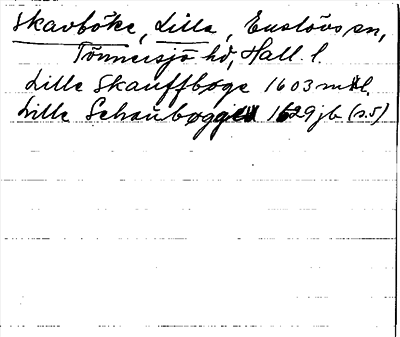 Skavböke, Lilla, Enslövs sn,
Tönnersjö hd, Hall. l.
Lille Skauffbøge 1603 mtl.
Lille Schaubøgge 1629 jb (s. 5)